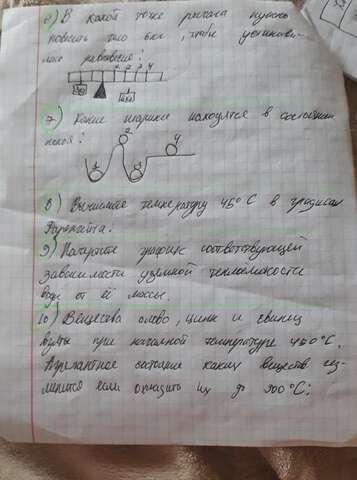 6) В какой точке рычага нужно
повесить тело 6кг, чтобы установи-
лось равновесие?
1 2 3 4
7) Какие шарики находятся в состоянии
покоя?
1 2 3 4
8) Вычислите температуру 45°С в градусах
Фаренгейта.
9) Начертите график соответствующей
зависимости удельной теплоемкости
воды от её массы.
10) Вещества олово, цинк и свинец
взяты при начальной температуре 450°С.
Агрегатное состояние каких веществ из-
менится если охладить их до 300°С?